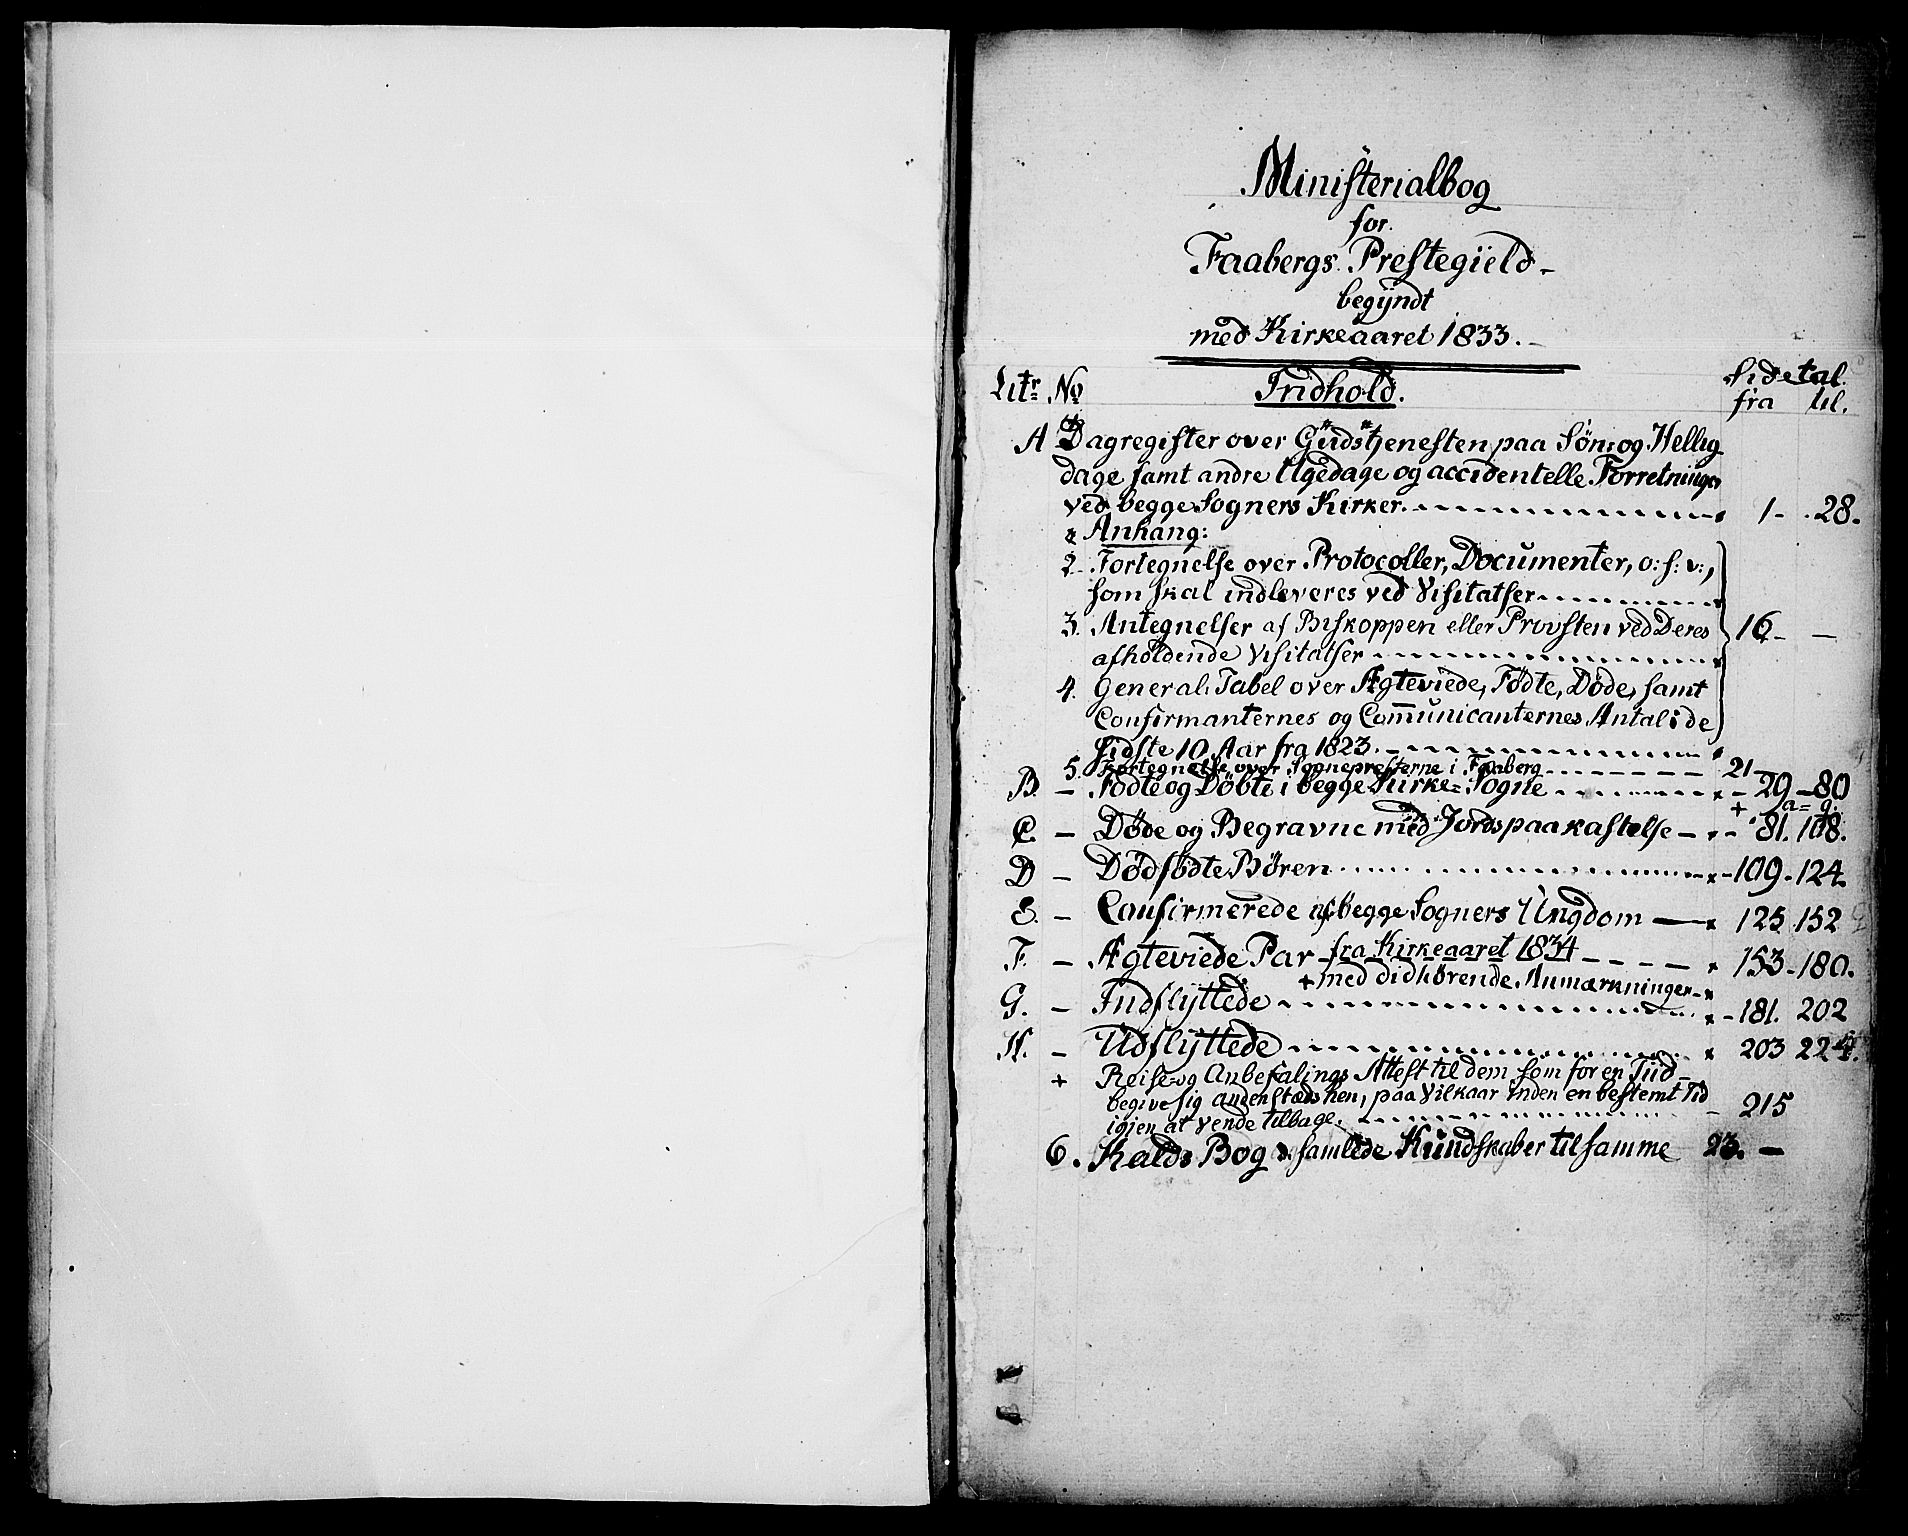 Ministerialbog
for
Faabergs Prestegield
begÿndt
med Kirkeaaret 1833.
Litr No Indhold. Sidetal
fra til.
A Dagregister over Gudstjenesten paa Søn: og Hellig
dage samt andre Ugedage og accidentelle Forretninger
ved begge Sogners Kirker. 1 - 28.
Anhang:
2 Fortegnelse over Protocoller, Documenter, o: s: v:,
som skal indleveres ved Visitatser
3. Antegnelser af Biskoppen eller Provsten ved Deres 16 -
afholdende Visitatser
4. General: Tabel over Ægteviede, Fødte, Døde, samt
Confirmanternes og Com̄unicanternes Antal i de
sidste 10 Aar fra 1823.
5. Fortegnelse over Sognepresterne i Faaberg 21
B. - Fødte og Døbte i begge Kirke=Sogne 29 - 80
+ a = g.
C - Døde og Begravne med Jordspaakastelse 81. 108.
D - Dødfødte Børen 109 - 124.
E. - Confirmerede af begge Sogners Ungdom 125 152
F. - Ægteviede Par fra Kirkeaaret 1834 153 - 180.
+ med didhørende Anmærkninger
G. - Indflyttede 181. 202
H. - Udflyttede 203 224.
+ Reise- og Anbefalings Attest til dem som for en Tiid
begive sig andenstæds hen, paa Vilkaar inden en bestemt Tid
igien at vende tilbage. 215
6. Kalds Bog samlede Kundskaber til samme 23. -